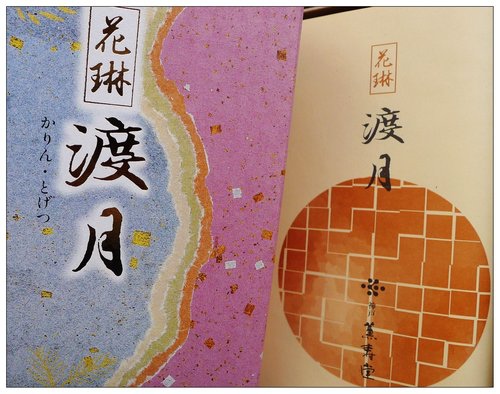 花琳
渡月
かりん・とげつ
花琳
渡月
薫寿堂